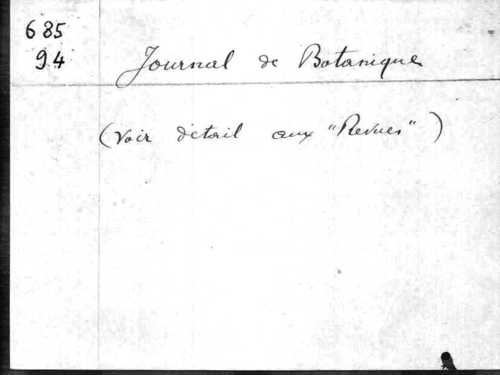 685
94
Journal de Botanique
(Voir détail aux "Revues")